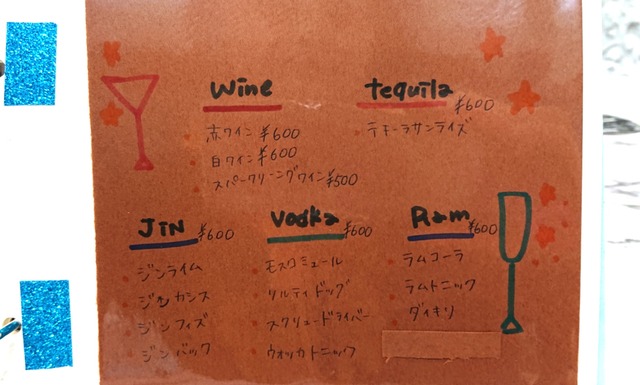 Wine
赤ワイン ¥600
白ワイン ¥600
スパークリーングワイン ¥500
tequila ¥600
テキーラサンライズ
JiN ¥600
ジンライム
ジンカシス
ジンフィズ
ジンバック
Vodka ¥600
モスコミュール
ソルティドッグ
スクリュードライバー
ウォッカトニック
Ram ¥600
ラムコーラ
ラムトニック
ダイキリ